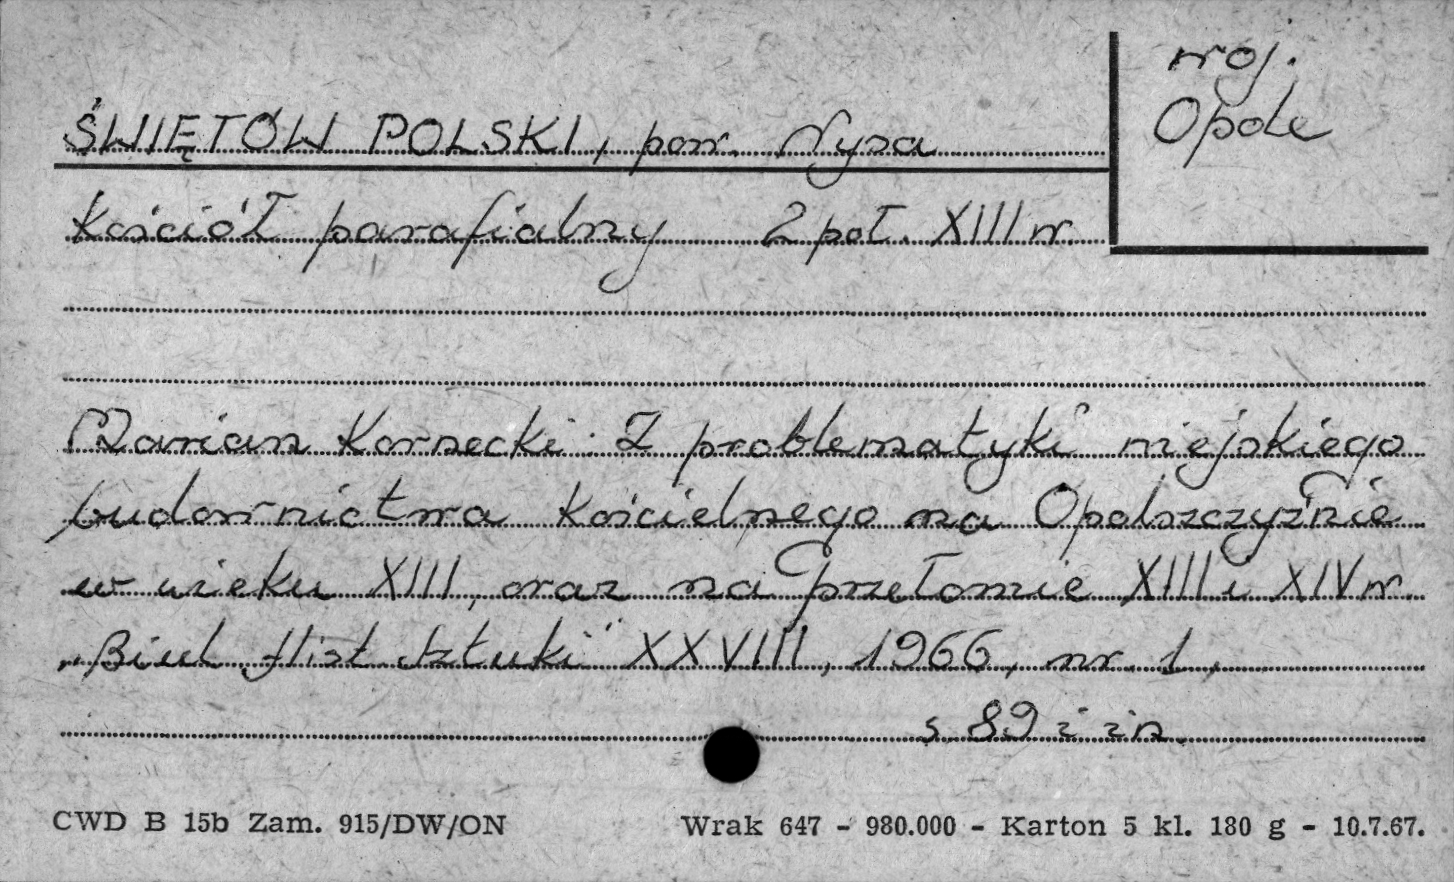 woj.
Opole
ŚWIĘTÓW POLSKI, pow. Nysa
Kościół parafialny 2 poł. XIII w.
Marian Kornecki: Z problematyki wiejskiego
budownictwa kościelnego na Opolszczyźnie
w wieku XIII, oraz na przełomie XIII i XIV w.
„Biul. Hist. Sztuki" XXVIII, 1966, nr. 1,
s. 89 i in.
CWD B 15b Zam. 915/DW/ON Wrak 647 - 980.000 - Karton 5 kl. 180 g - 10.7.67.